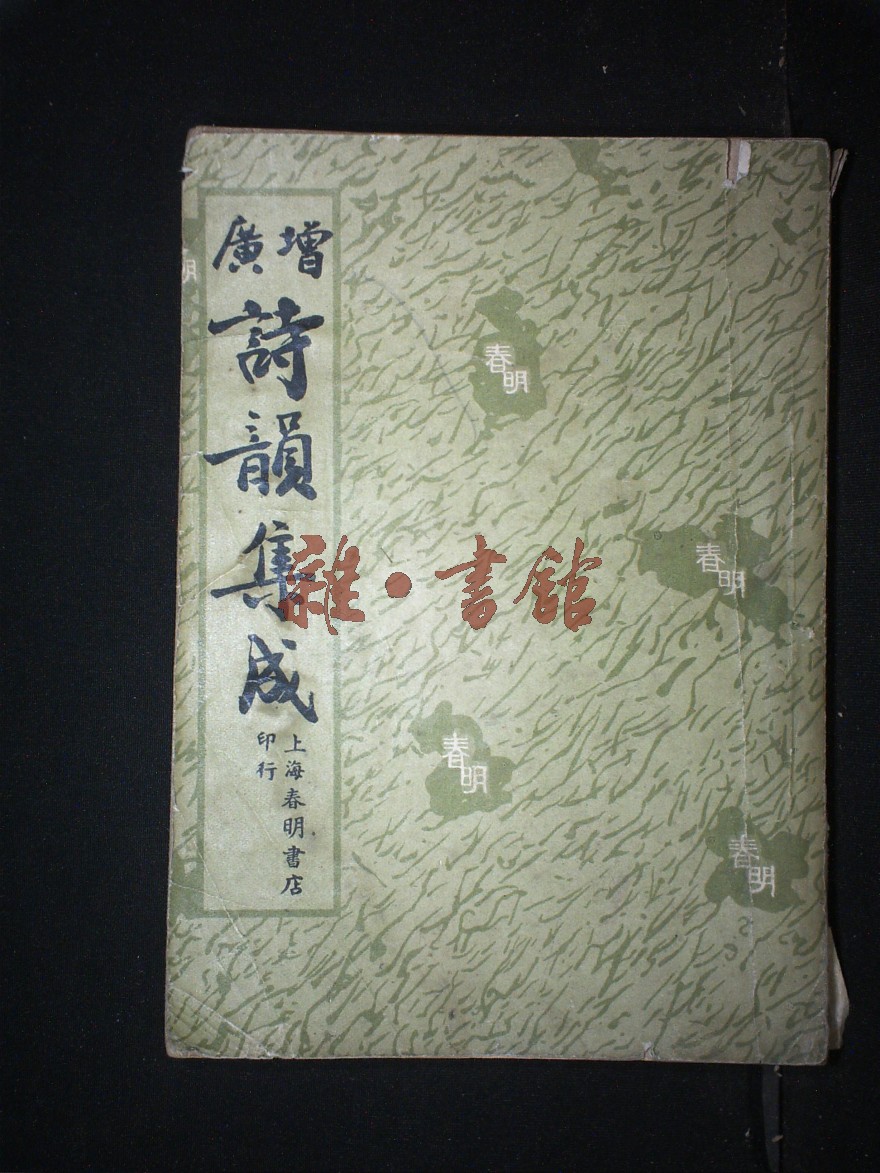 增廣
詩韻集成
上海春明書店
印行
明
春明
春明
春明
春明
雜·書館